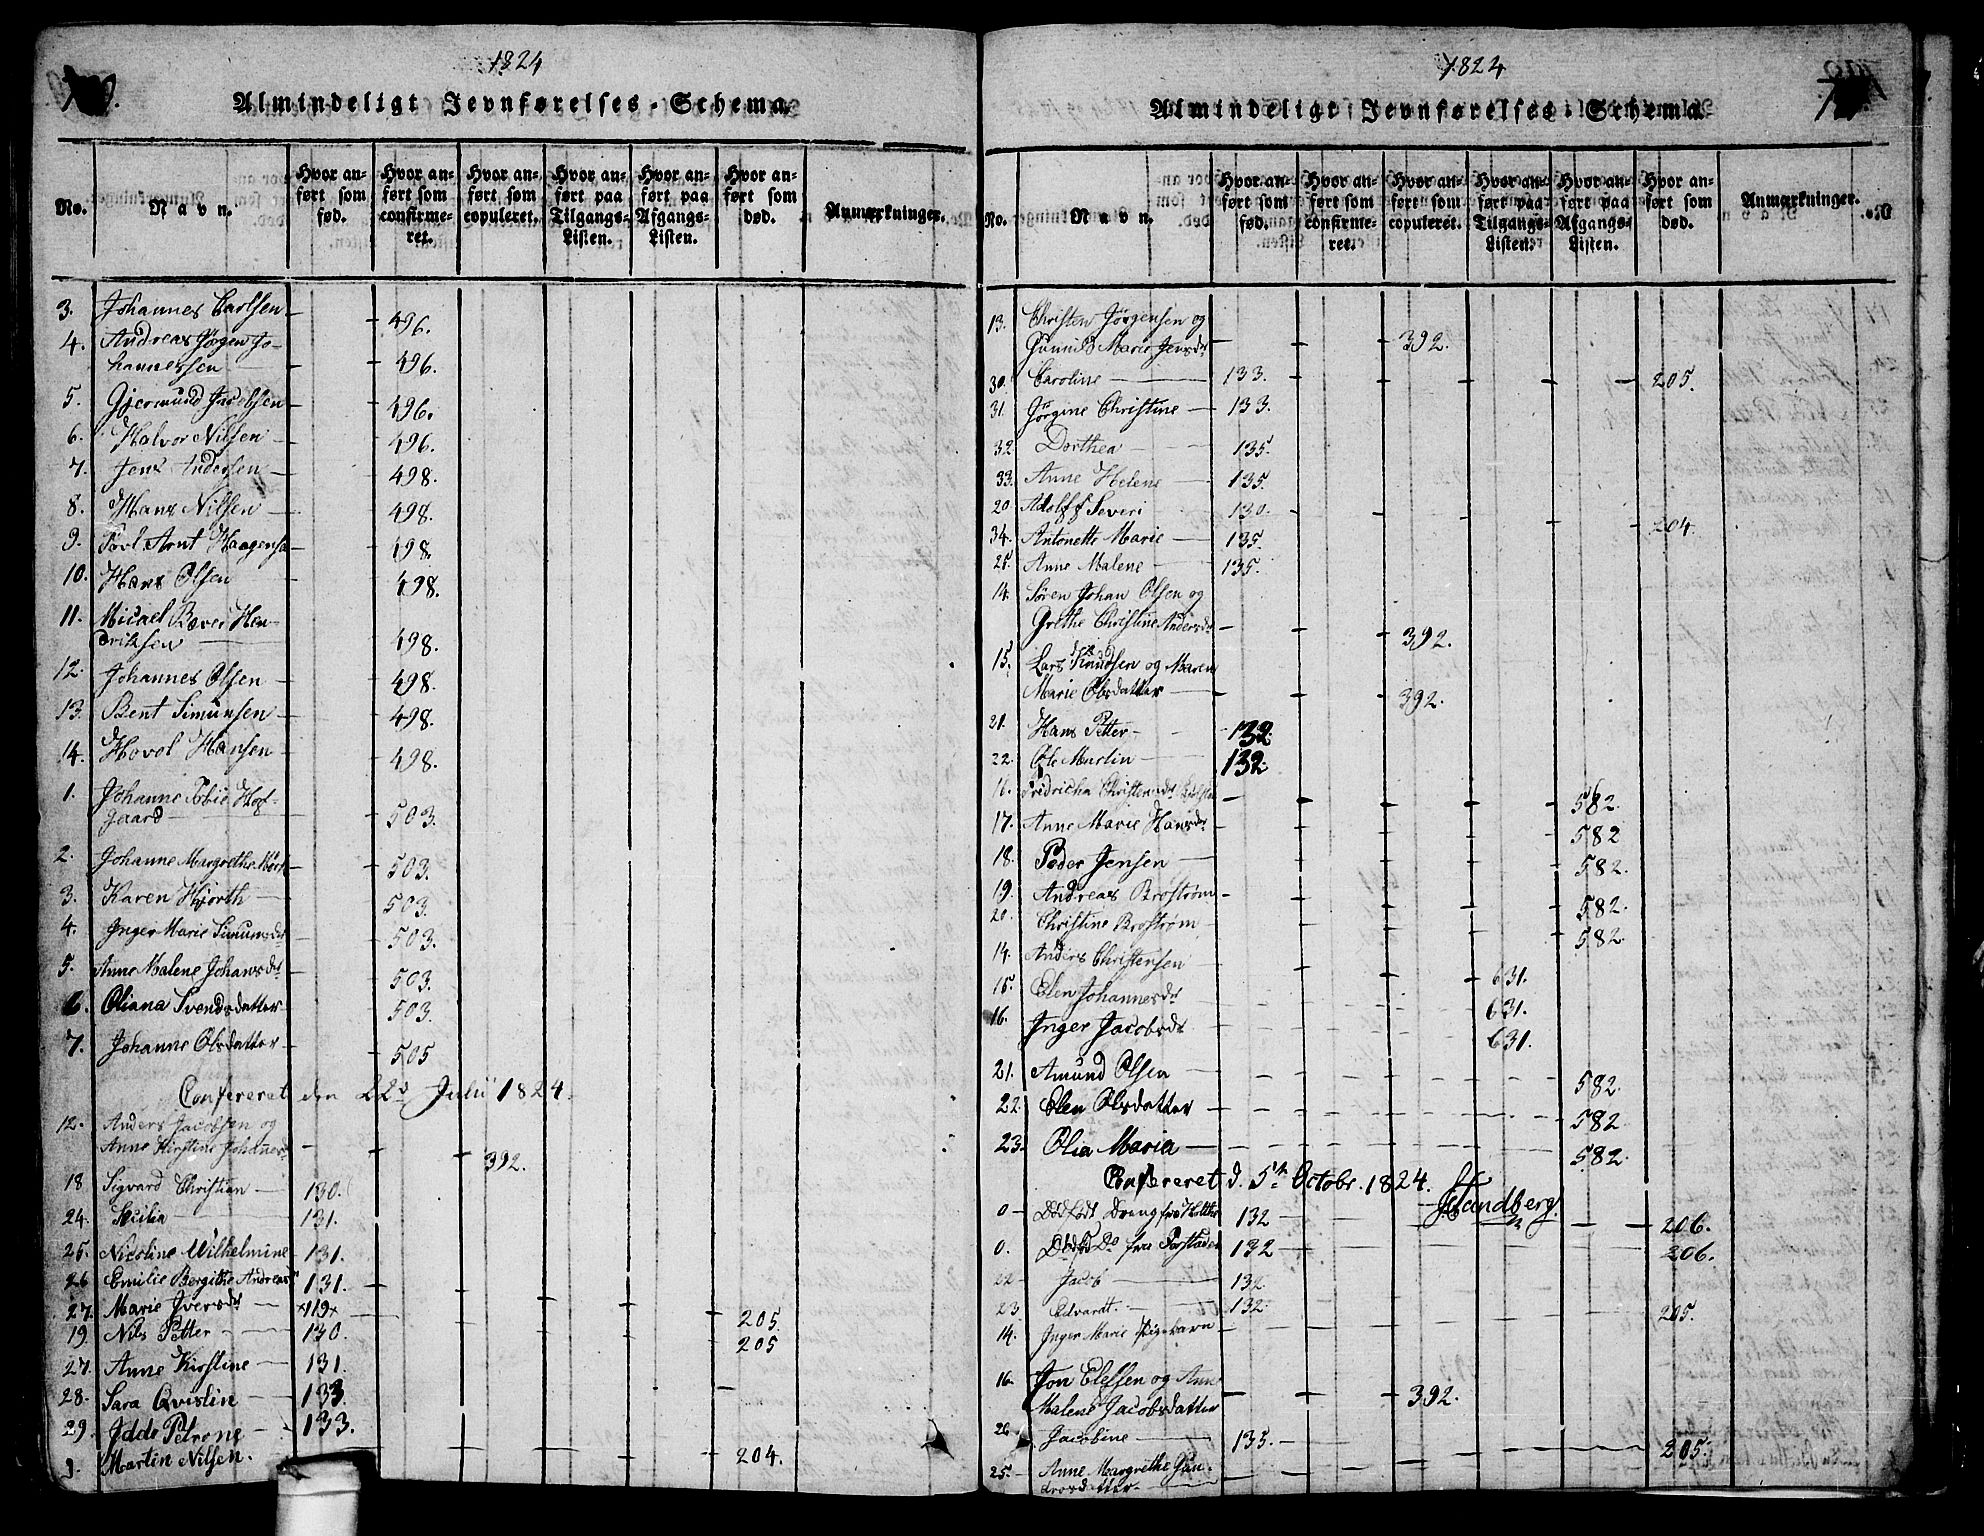 1824
Almindeligt Jevnførelses-Schema
No.
Navn.
Hvor anført som fød.
Hvor anført som confirmeret.
Hvor anført som copuleret.
Hvor anført paa Tilgangs-Listen.
Hvor anført paa Afgangs-Listen.
Hvor anført som død.
Anmærkninger.
3. Johannes Carlsen — — 496.
4. Andreas Jørgen Jo-
hannessen — — 496.
5. Gjermund Jacobsen — 496.
6. Halvor Nilsen — 496.
7. Jens Andersen — 498.
8. Hans Nilsen — 498.
9. Povl Arnt Haagens — 498.
10. Hans Olsen — 498.
11. Micael Bæver Hen-
driksen — 498.
12. Johannes Olsen — 498.
13. Bent Simunsen — 498.
14. Hovol Hansen — 498.
1. Johanne Tobie Hof-
gaard — 503.
2. Johanne Margrethe — 503.
3. Karen Hjorth — 503.
4. Inger Marie Simunsdr — 503.
5. Anne Malene Johansdr 503.
6. Oliana Svendsdatter — 503.
7. Johanne Olsdatter — 505
Confereret den 22d Julii 1824.
12. Anders Jacobsen og
Anne Kirstine Johanes — — — 392.
18 Sigvard Christian — 130.
24. Sicilia — 131.
25. Nicoline Wilhelmine 131.
26 Emilie Bergithe Andreas 131.
27. Marie Iversdr — ×119× — 205.
19. Nils Petter — 130. — 205
27. Anne Kirstine — 131.
28. Sara Qvistin — 133.
29. Idde Petrone — 133.
9. Martin Nilsen. — 204.
1824
Almindeligt Jevnførelses-Schema
No.
Navn.
Hvor anført som fød.
Hvor anført som confirmeret.
Hvor anført som copuleret.
Hvor anført paa Tilgangs-Listen.
Hvor anført paa Afgangs-Listen.
Hvor anført som død.
Anmærkninger.
13. Christen Jørgensen og
Gunild Marie Jensdr — — — 392.
30. Caroline — 133. — — — — — 205.
31. Jørgine Christine — 133.
32 Dorthea — 135.
33. Anne Helene — 135.
20 Adolff Severi 130. — — — — — 204.
34. Antonette Marie — 135.
25. Anne Malene — 135.
14. Søren Johan Olsen og
Grethe Christine Andersdr — — — 392.
15. Lars Knudsen og Maren
Marie Olsdatter — — — — 392.
21. Hans Petter — 132.
22. Ole Martin — 132.
16. Fridricha Christensdr — — — — — 582.
17. Anne Marie Hansdr — — — — 582
18. Peder Jensen — — — — — 582.
19. Andreas Broström — — — — 582.
20. Christine Broström — 582.
14. Anders Christensen — — — 631.
15. Elen Johannesdr — 631.
16. Inger Jacobsdr — 631.
21. Amund Olsen — 582.
22. Elen Olsdatter — 582.
23. Olia Maria — 582.
Confereret d. 5te Octobr. 1824.
0 — Dødfødt Dreng fra 132 — 206.
0. Dødfd Do fra 132 — 206.
22 — Jacob — 132
23 Edvardt. — 132.
14. Inger Marie Pigebarn — 205.
16. Jon Elefsen og Ann
Malene Jacobsdatter — — — 392.
26 Jacobine — 135. — 205.
25. Anne Margrethe Gun-